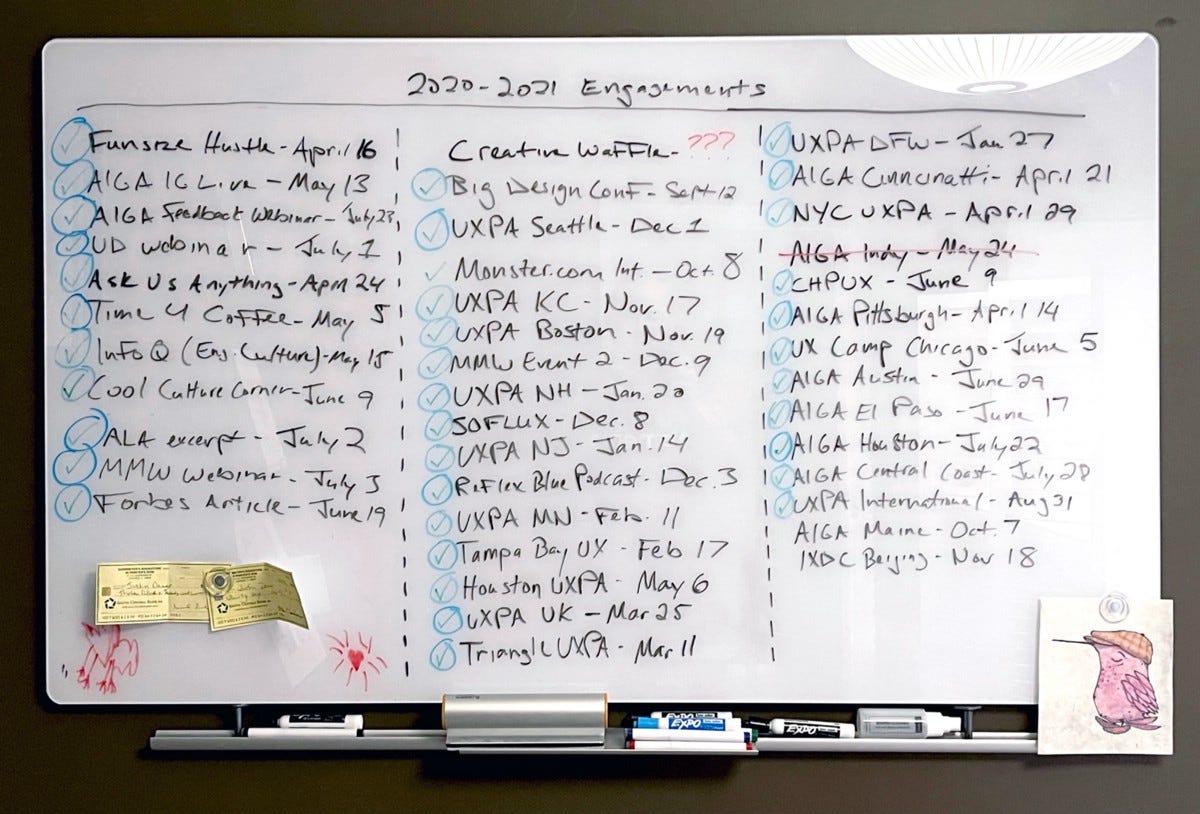 2020-2021 Engagements
Funsize Hustle - April 16
AIGA IG Live - May 13
AIGA Feedback Webinar - July 23
UD webinar - July 1
Ask Us Anything - April 24
Time 4 Coffee - May 5
InfoQ (Eng. Culture) - May 15
Cool Culture Corner - June 9
ALA excerpt - July 2
MMW Webinar - July 3
Forbes Article - June 19
Creative Waffle - ???
Big Design Conf - Sept 12
UXPA Seattle - Dec 1
Monster.com Int. - Oct. 8
UXPA KC - Nov. 17
UXPA Boston - Nov. 19
MMW Event 2 - Dec. 9
UXPA NH - Jan. 20
SOFLUX - Dec. 8
UXPA NJ - Jan. 14
Reflex Blue Podcast - Dec. 3
UXPA MN - Feb. 11
Tampa Bay UX - Feb 17
Houston UXPA - May 6
UXPA UK - Mar 25
Triangle UXPA - Mar 11
UXPA DFW - Jan 27
AIGA Cinncinatti - April 21
NYC UXPA - April 29
AIGA Indy - May 24
CHPUX - June 9
AIGA Pittsburgh - April 14
UX Camp Chicago - June 5
AIGA Austin - June 29
AIGA El Paso - June 17
AIGA Houston - July 22
AIGA Central Coast - July 28
UXPA International - Aug 31
AIGA Maine - Oct. 7
IXDC Beijing - Nov 18
EXPO
EXPO
EXPO